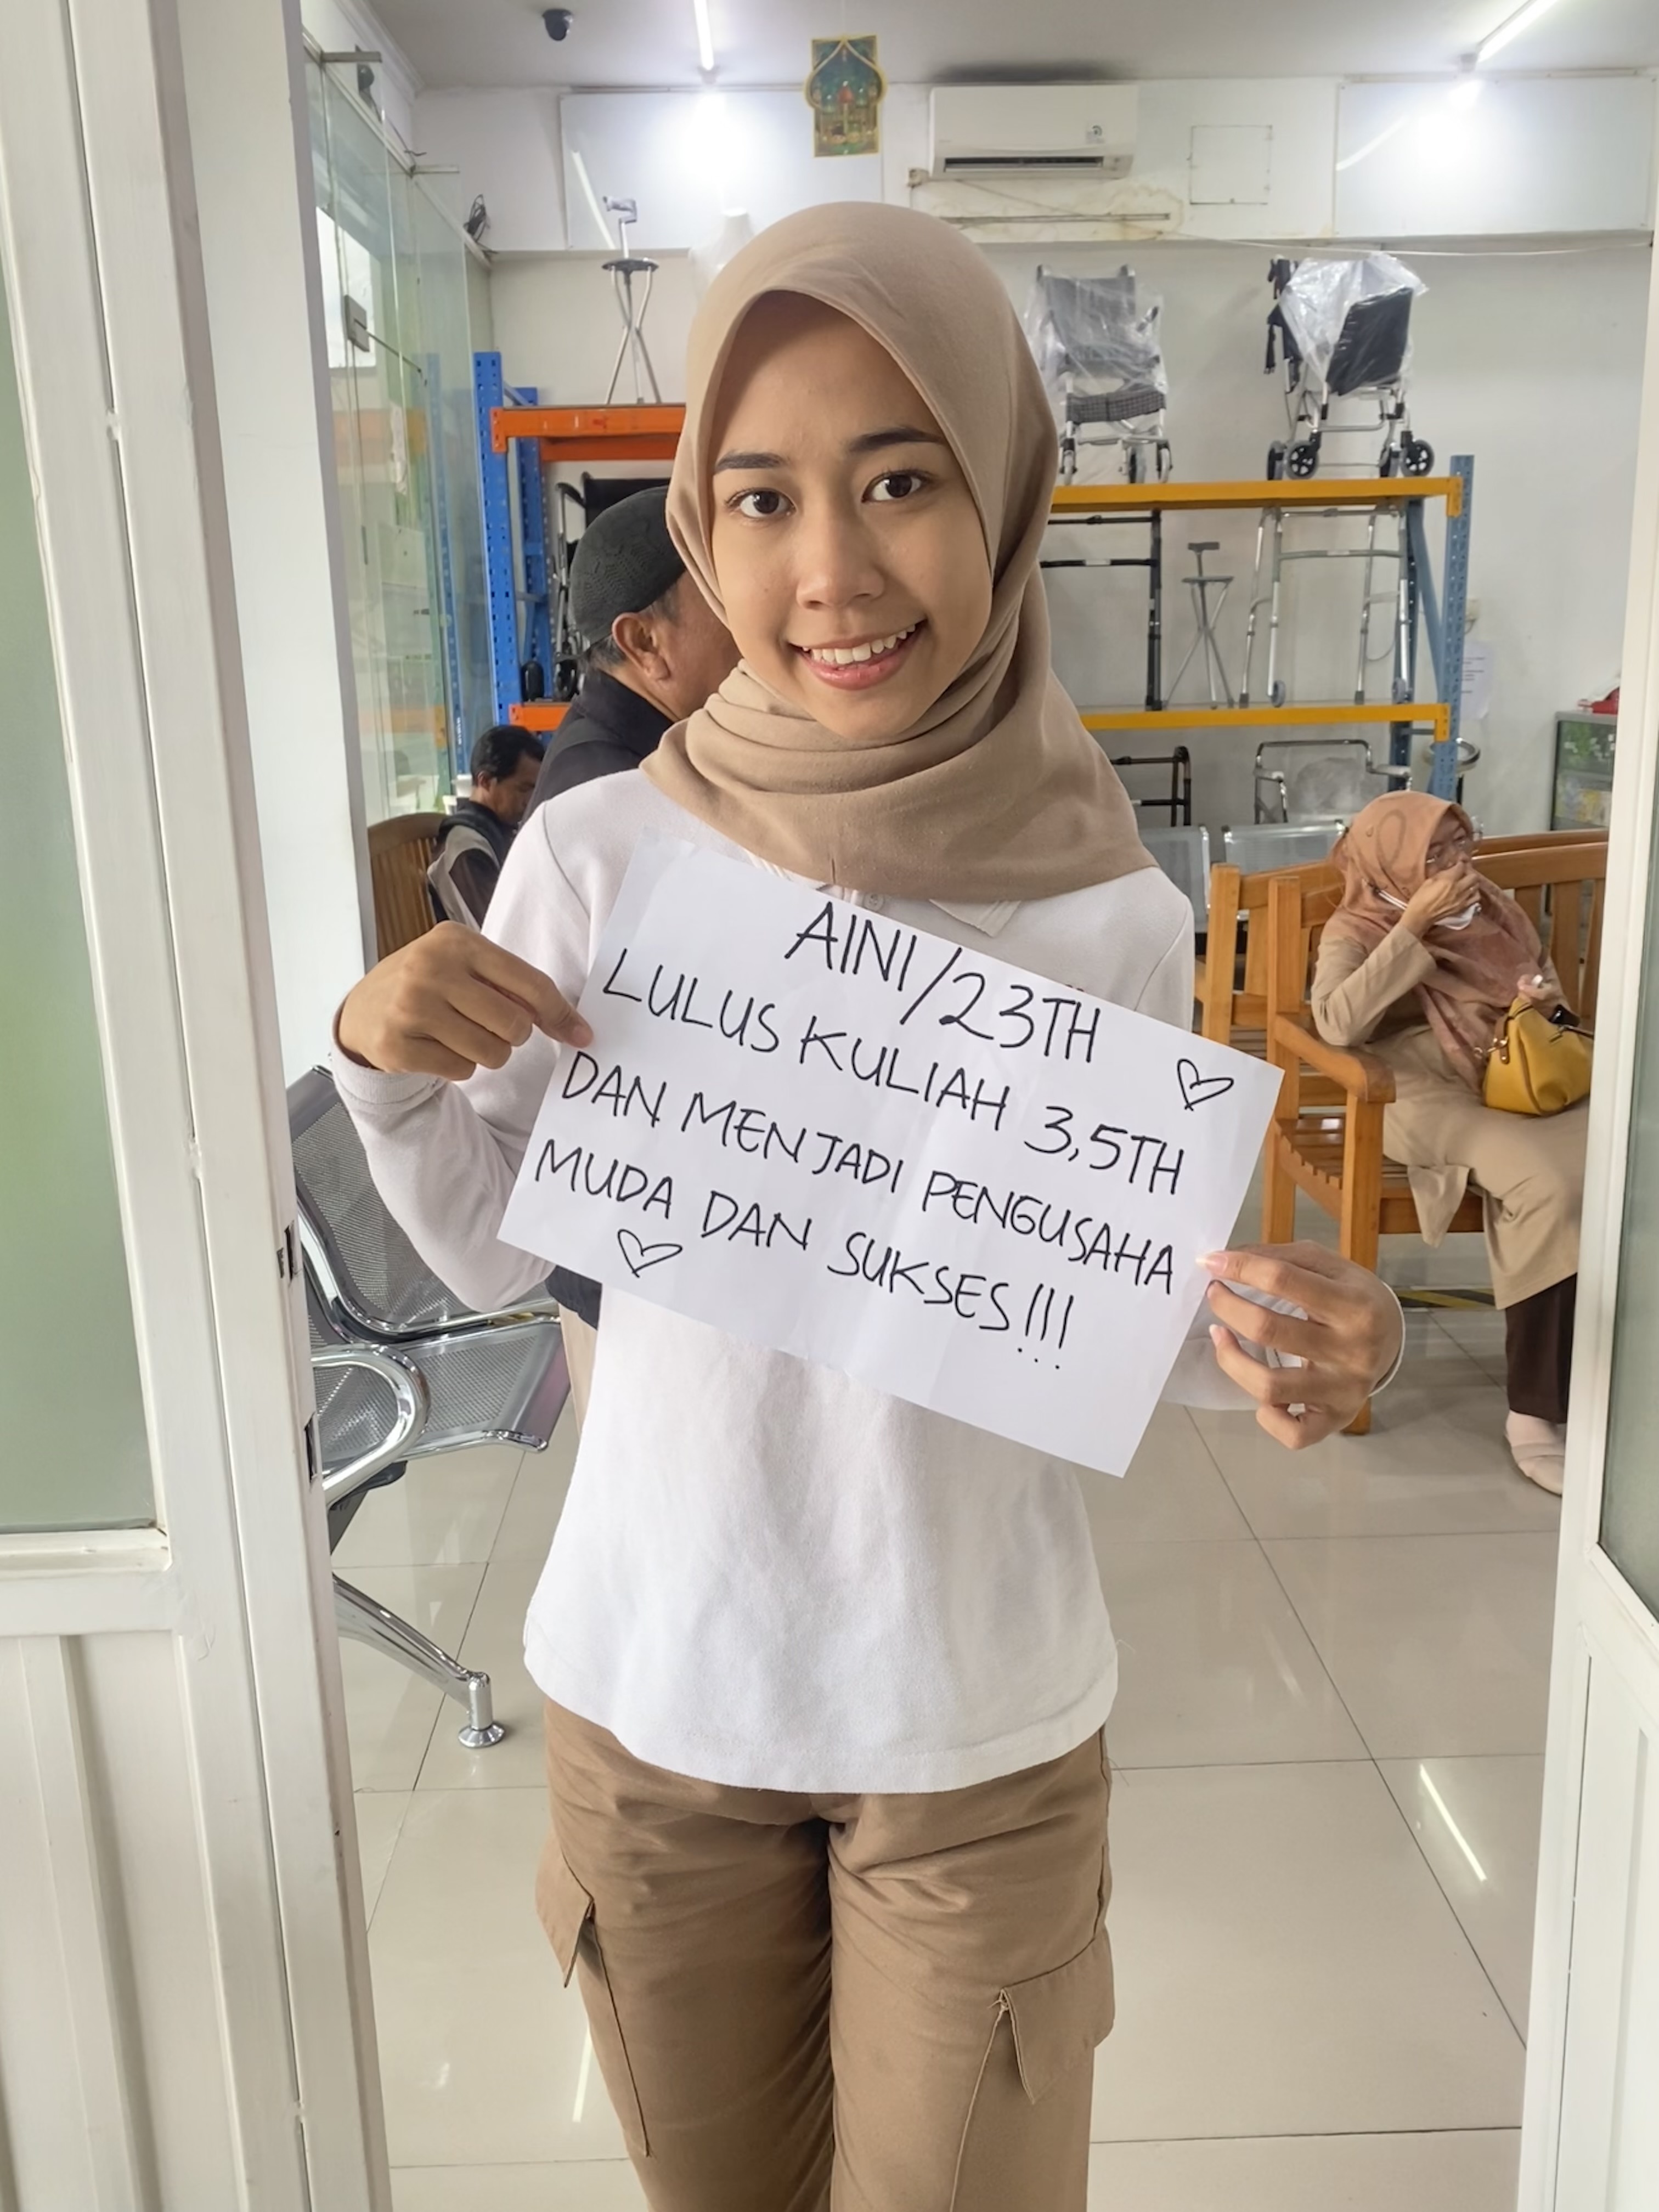 AINI/23TH
LULUS KULIAH 3,5TH
DAN MENJADI PENGUSAHA
MUDA DAN SUKSES!!!